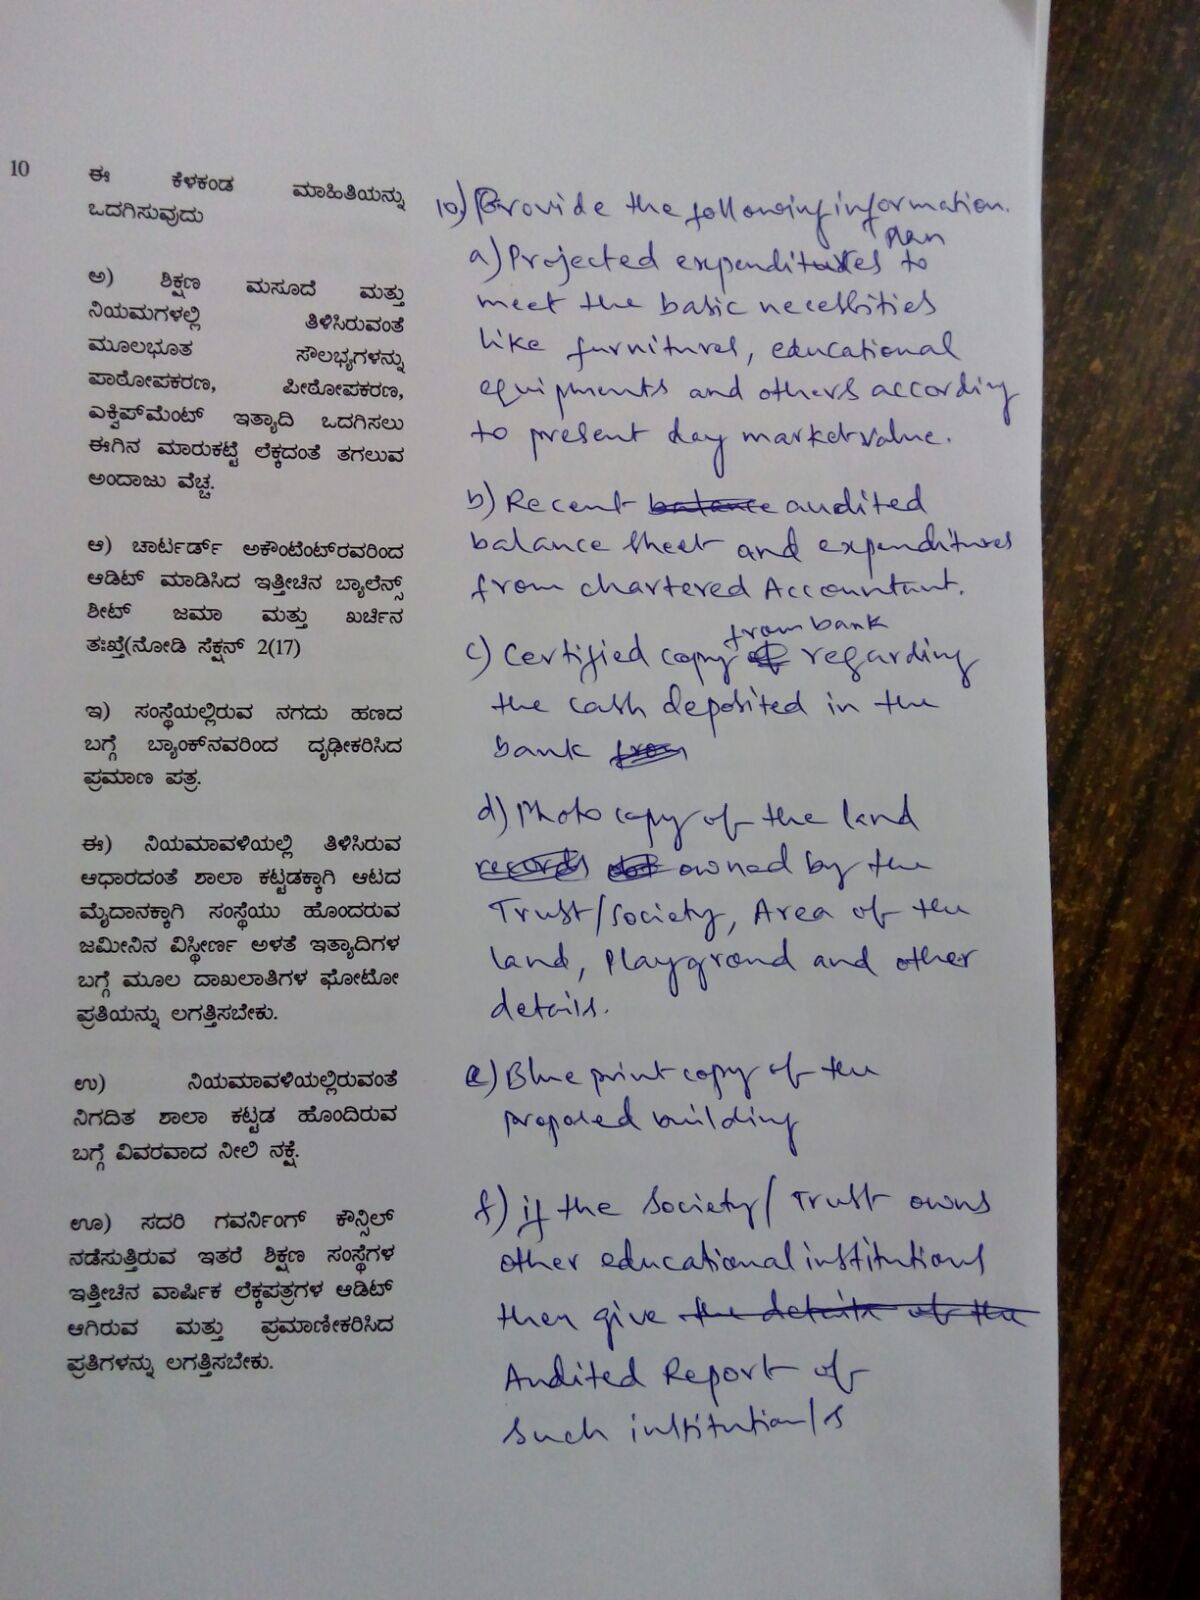 10
ಈ ಕೆಳಕಂಡ ಮಾಹಿತಿಯನ್ನು
ಒದಗಿಸುವುದು
ಅ) ಶಿಕ್ಷಣ ಮಸೂದೆ ಮತ್ತು
ನಿಯಮಗಳಲ್ಲಿ ತಿಳಿಸಿರುವಂತೆ
ಮೂಲಭೂತ ಸೌಲಭ್ಯಗಳನ್ನು
ಪಾಠೋಪಕರಣ, ಪೀಠೋಪಕರಣ,
ಎಕ್ವಿಪ್‌ಮೆಂಟ್ ಇತ್ಯಾದಿ ಒದಗಿಸಲು
ಈಗಿನ ಮಾರುಕಟ್ಟೆ ಲೆಕ್ಕದಂತೆ ತಗಲುವ
ಅಂದಾಜು ವೆಚ್ಚ.
ಆ) ಚಾರ್ಟರ್ಡ್ ಅಕೌಂಟೆಂಟ್‌ರವರಿಂದ
ಆಡಿಟ್ ಮಾಡಿಸಿದ ಇತ್ತೀಚಿನ ಬ್ಯಾಲೆನ್ಸ್
ಶೀಟ್ ಜಮಾ ಮತ್ತು ಖರ್ಚಿನ
ತಃಖ್ತೆ(ನೋಡಿ ಸೆಕ್ಷನ್ 2(17)
ಇ) ಸಂಸ್ಥೆಯಲ್ಲಿರುವ ನಗದು ಹಣದ
ಬಗ್ಗೆ ಬ್ಯಾಂಕ್‌ನವರಿಂದ ದೃಢೀಕರಿಸಿದ
ಪ್ರಮಾಣ ಪತ್ರ.
ಈ) ನಿಯಮಾವಳಿಯಲ್ಲಿ ತಿಳಿಸಿರುವ
ಆಧಾರದಂತೆ ಶಾಲಾ ಕಟ್ಟಡಕ್ಕಾಗಿ ಆಟದ
ಮೈದಾನಕ್ಕಾಗಿ ಸಂಸ್ಥೆಯು ಹೊಂದರುವ
ಜಮೀನಿನ ವಿಸ್ತೀರ್ಣ ಅಳತೆ ಇತ್ಯಾದಿಗಳ
ಬಗ್ಗೆ ಮೂಲ ದಾಖಲಾತಿಗಳ ಫೋಟೋ
ಪ್ರತಿಯನ್ನು ಲಗತ್ತಿಸಬೇಕು.
ಉ) ನಿಯಮಾವಳಿಯಲ್ಲಿರುವಂತೆ
ನಿಗದಿತ ಶಾಲಾ ಕಟ್ಟಡ ಹೊಂದಿರುವ
ಬಗ್ಗೆ ವಿವರವಾದ ನೀಲಿ ನಕ್ಷೆ.
ಊ) ಸದರಿ ಗವರ್ನಿಂಗ್ ಕೌನ್ಸಿಲ್
ನಡೆಸುತ್ತಿರುವ ಇತರೆ ಶಿಕ್ಷಣ ಸಂಸ್ಥೆಗಳ
ಇತ್ತೀಚಿನ ವಾರ್ಷಿಕ ಲೆಕ್ಕಪತ್ರಗಳ ಆಡಿಟ್
ಆಗಿರುವ ಮತ್ತು ಪ್ರಮಾಣೀಕರಿಸಿದ
ಪ್ರತಿಗಳನ್ನು ಲಗತ್ತಿಸಬೇಕು.
10) Provide the following information.
a) Projected expenditures plan to
meet the basic necessities
like furnitures, educational
equipments and others according
to present day market value.
b) Recent balance audited
balance sheet and expenditures
from chartered Accountant.
c) Certified copy from bank regarding
the cash deposited in the
bank from
d) Photo copy of the land
records owned by the
Trust/society, Area of the
land, Playgrond and other
details.
e) Blue print copy of the
proposed building
f) if the Society/Trust owns
other educational institutions
then give the details of the
Audited Report of
such institution/s